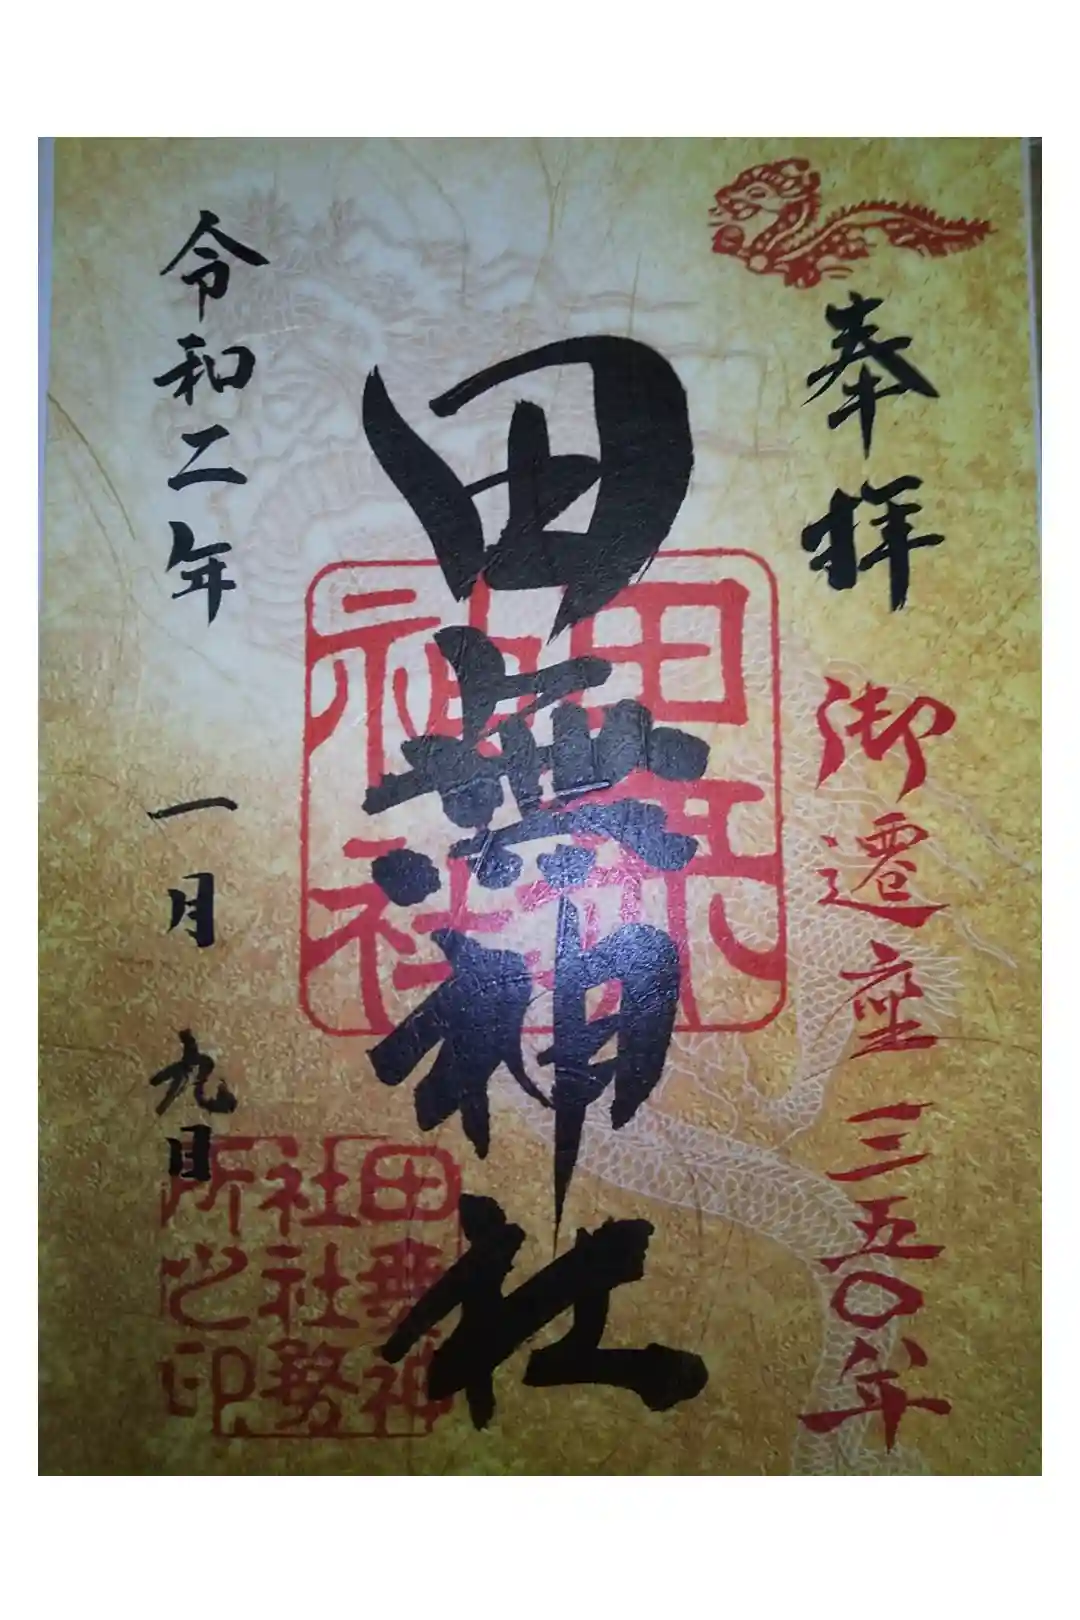 奉拝
御遷座三五〇年
田無神社
田無神社
田無神
社社務
所之印
令和二年 一月 九日